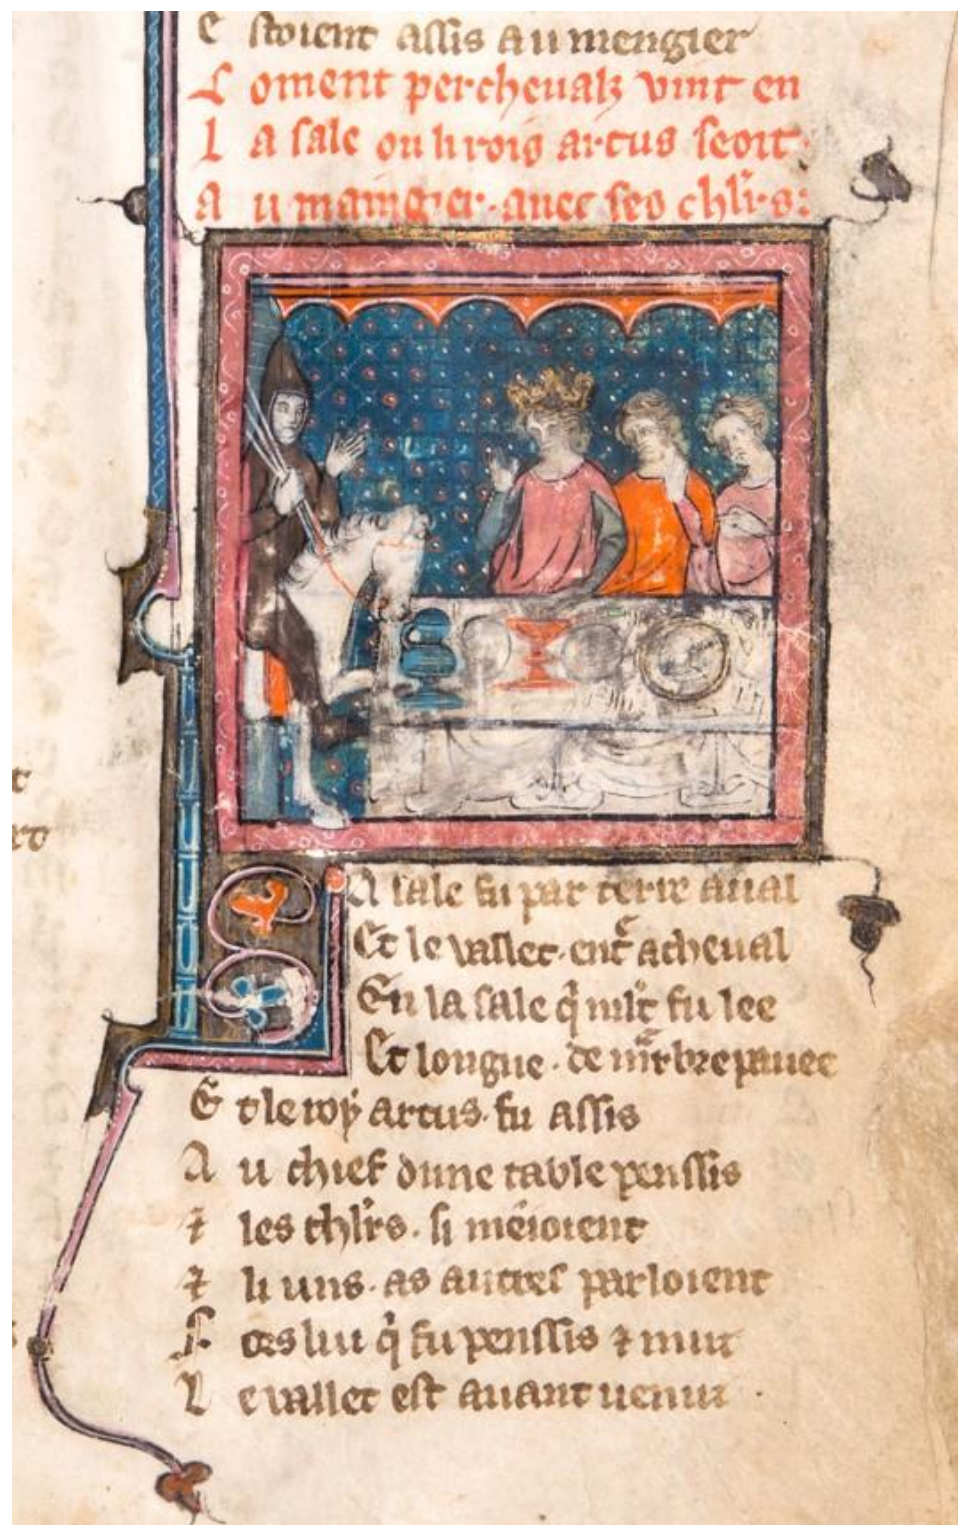 E stoient assis au mengier
C oment percheualz vint en
l a sale ou li rois artus seoit.
a u maingier. auec ses chlrs:
LA sale fu par terre aual
Et le vallet. entᵃ a cheual
En la sale q̇ mlt̄ fu lee
Et longue. de mᵃrbre pauee
E t le roy artus. fu assis
A u chief dune table penssis
⁊ les chlrs. si mēioient
⁊ li uns. as autres parloient
F ors lui q̇ fu penssis ⁊ mut
L e vallet est auant uenut